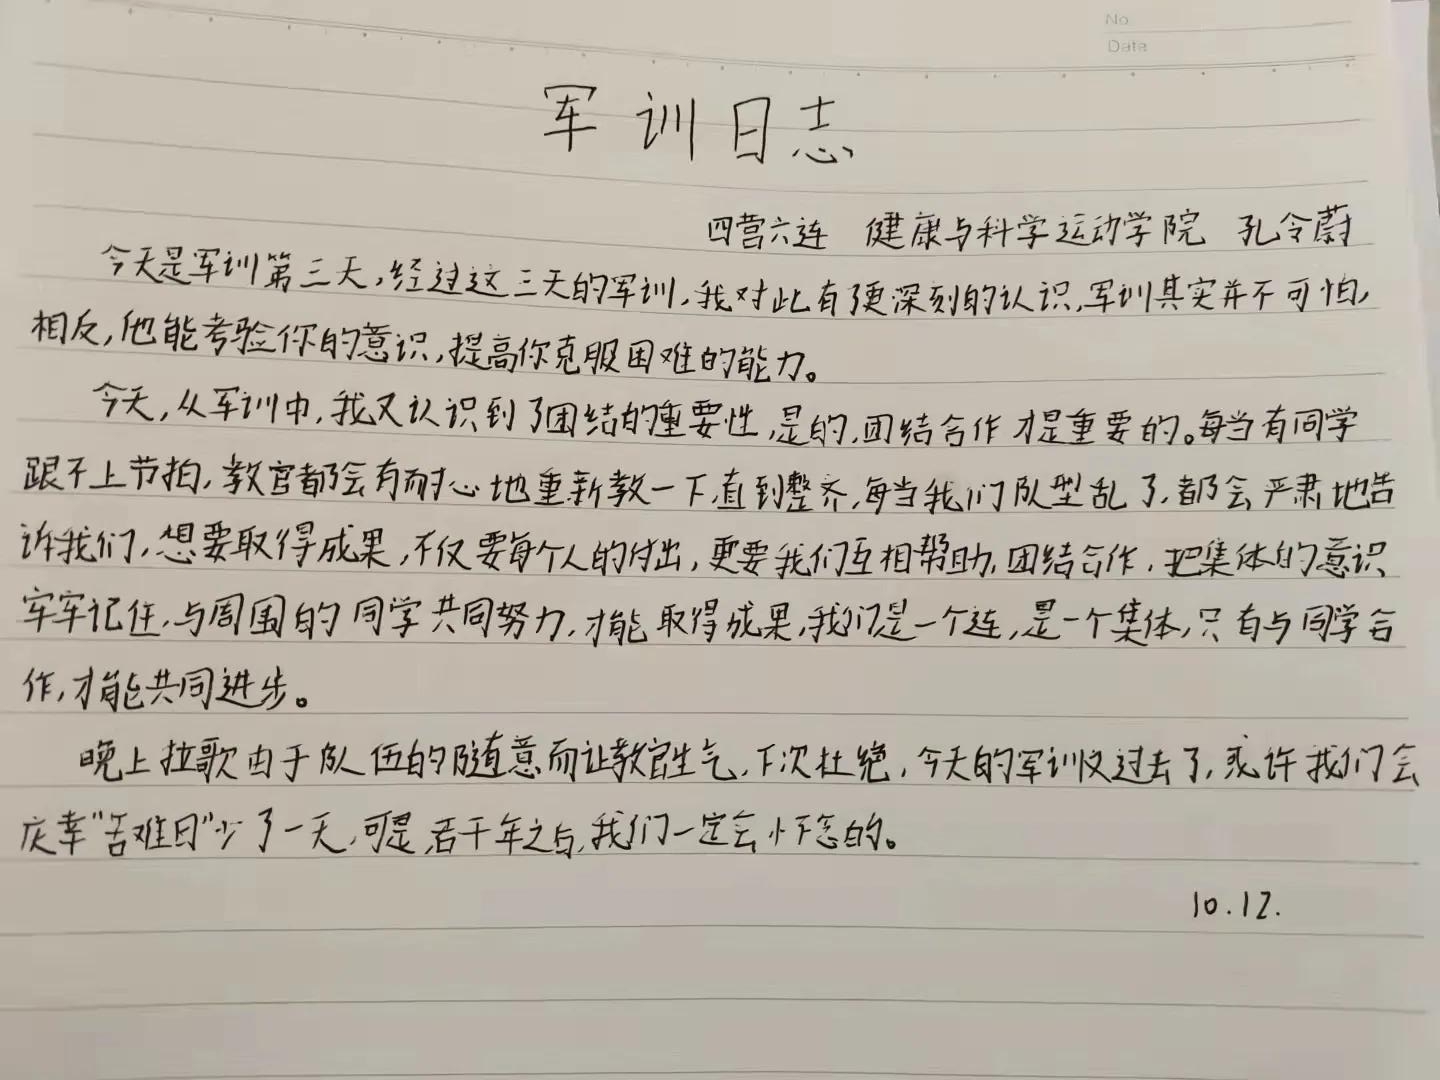 No
Date
军训日志
四营六连 健康与科学运动学院 孔令蔚
今天是军训第三天,经过这三天的军训,我对此有了更深刻的认识,军训其实并不可怕,
相反,他能考验你的意识,提高你克服困难的能力。
今天,从军训中,我又认识到了团结的重要性,是的,团结合作才是重要的。每当有同学
跟不上节拍,教官都会有耐心地重新教一下,直到整齐,每当我们队型乱了,都会严肃地告
诉我们,想要取得成果,不仅要每个人的付出,更要我们互相帮助,团结合作,把集体的意识
牢牢记住,与周围的同学共同努力,才能取得成果,我们是一个连,是一个集体,只有与同学合
作,才能共同进步。
晚上拉歌由于队伍的随意而让教官生气,下次杜绝,今天的军训又过去了,或许我们会
庆幸"苦难日"少了一天,可是,若干年之后,我们一定会怀念的。
10.12.